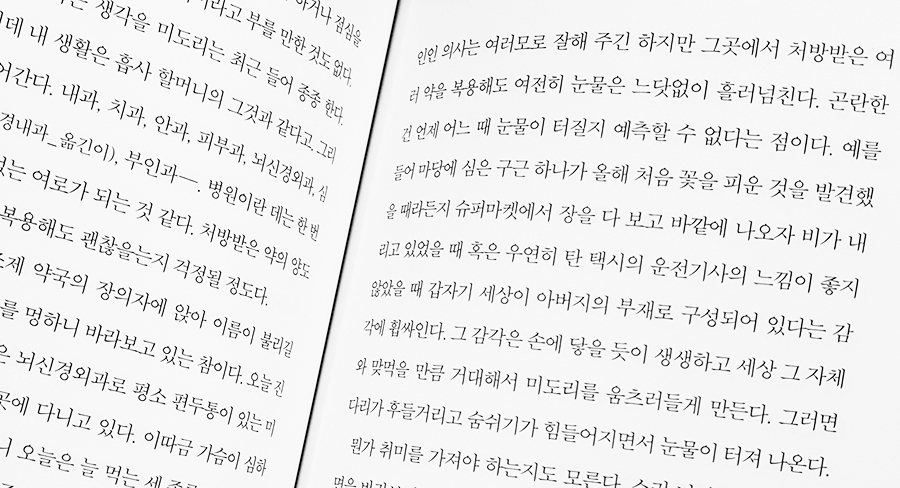 하거나 점심을
이라고 부를 만한 것도 없다.
는 생각을 미도리는 최근 들어 종종 한다.
데 내 생활은 흡사 할머니의 그것과 같다고. 그리
어간다. 내과, 치과, 안과, 피부과, 뇌신경외과, 심
경내과_옮긴이), 부인과―. 병원이란 데는 한 번
없는 여로가 되는 것 같다. 처방받은 약의 양도
복용해도 괜찮을는지 걱정될 정도다.
조제 약국의 장의자에 앉아 이름이 불리길
를 멍하니 바라보고 있는 참이다. 오늘 진
은 뇌신경외과로 평소 편두통이 있는 미
곳에 다니고 있다. 이따금 가슴이 심하
니 오늘은 늘 먹는 세
인인 의사는 여러모로 잘해 주긴 하지만 그곳에서 처방받은 여
러 약을 복용해도 여전히 눈물은 느닷없이 흘러넘친다. 곤란한
건 언제 어느 때 눈물이 터질지 예측할 수 없다는 점이다. 예를
들어 마당에 심은 구근 하나가 올해 처음 꽃을 피운 것을 발견했
을 때라든지 슈퍼마켓에서 장을 다 보고 바깥에 나오자 비가 내
리고 있었을 때 혹은 우연히 탄 택시의 운전기사의 느낌이 좋지
않았을 때 갑자기 세상이 아버지의 부재로 구성되어 있다는 감
각에 휩싸인다. 그 감각은 손에 닿을 듯이 생생하고 세상 그 자체
와 맞먹을 만큼 거대해서 미도리를 움츠러들게 만든다. 그러면
다리가 후들거리고 숨쉬기가 힘들어지면서 눈물이 터져 나온다.
뭔가 취미를 가져야 하는지도 모른다.